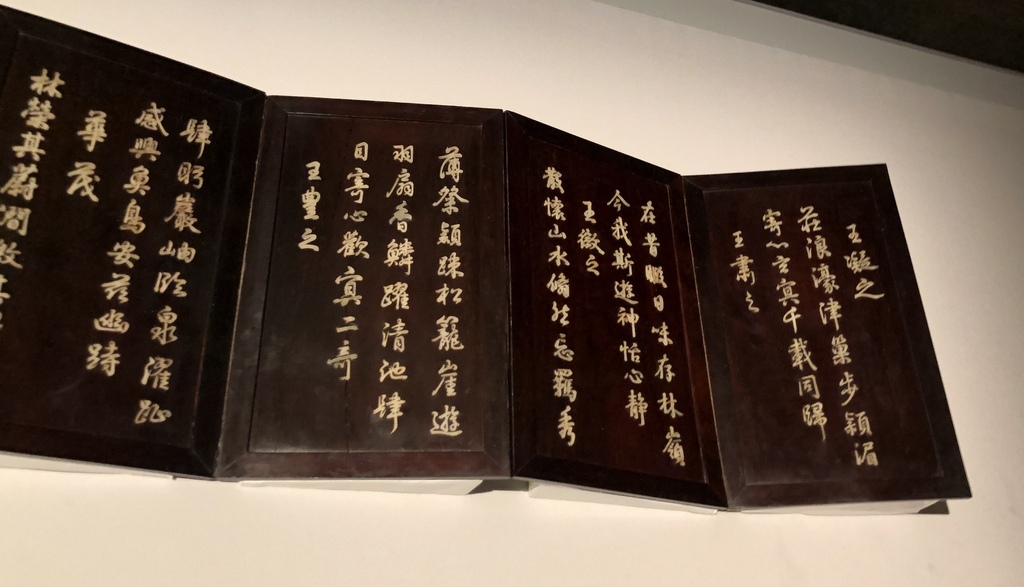 王凝之
莊浪濠津巢步潁湄
寄心玄冥千載同歸
王肅之
在昔暇日味存林嶺
今我斯遊神怡心靜
王徽之
散懷山水翛然忘羈秀
薄粲穎踈松籠崖遊
羽扇霄鱗躍清池歸
目寄心歡冥二奇
王豐之
肆眄巖岫臨泉濯趾
感興魚鳥安茲幽峙
華茂
林榮其蔚澗激其